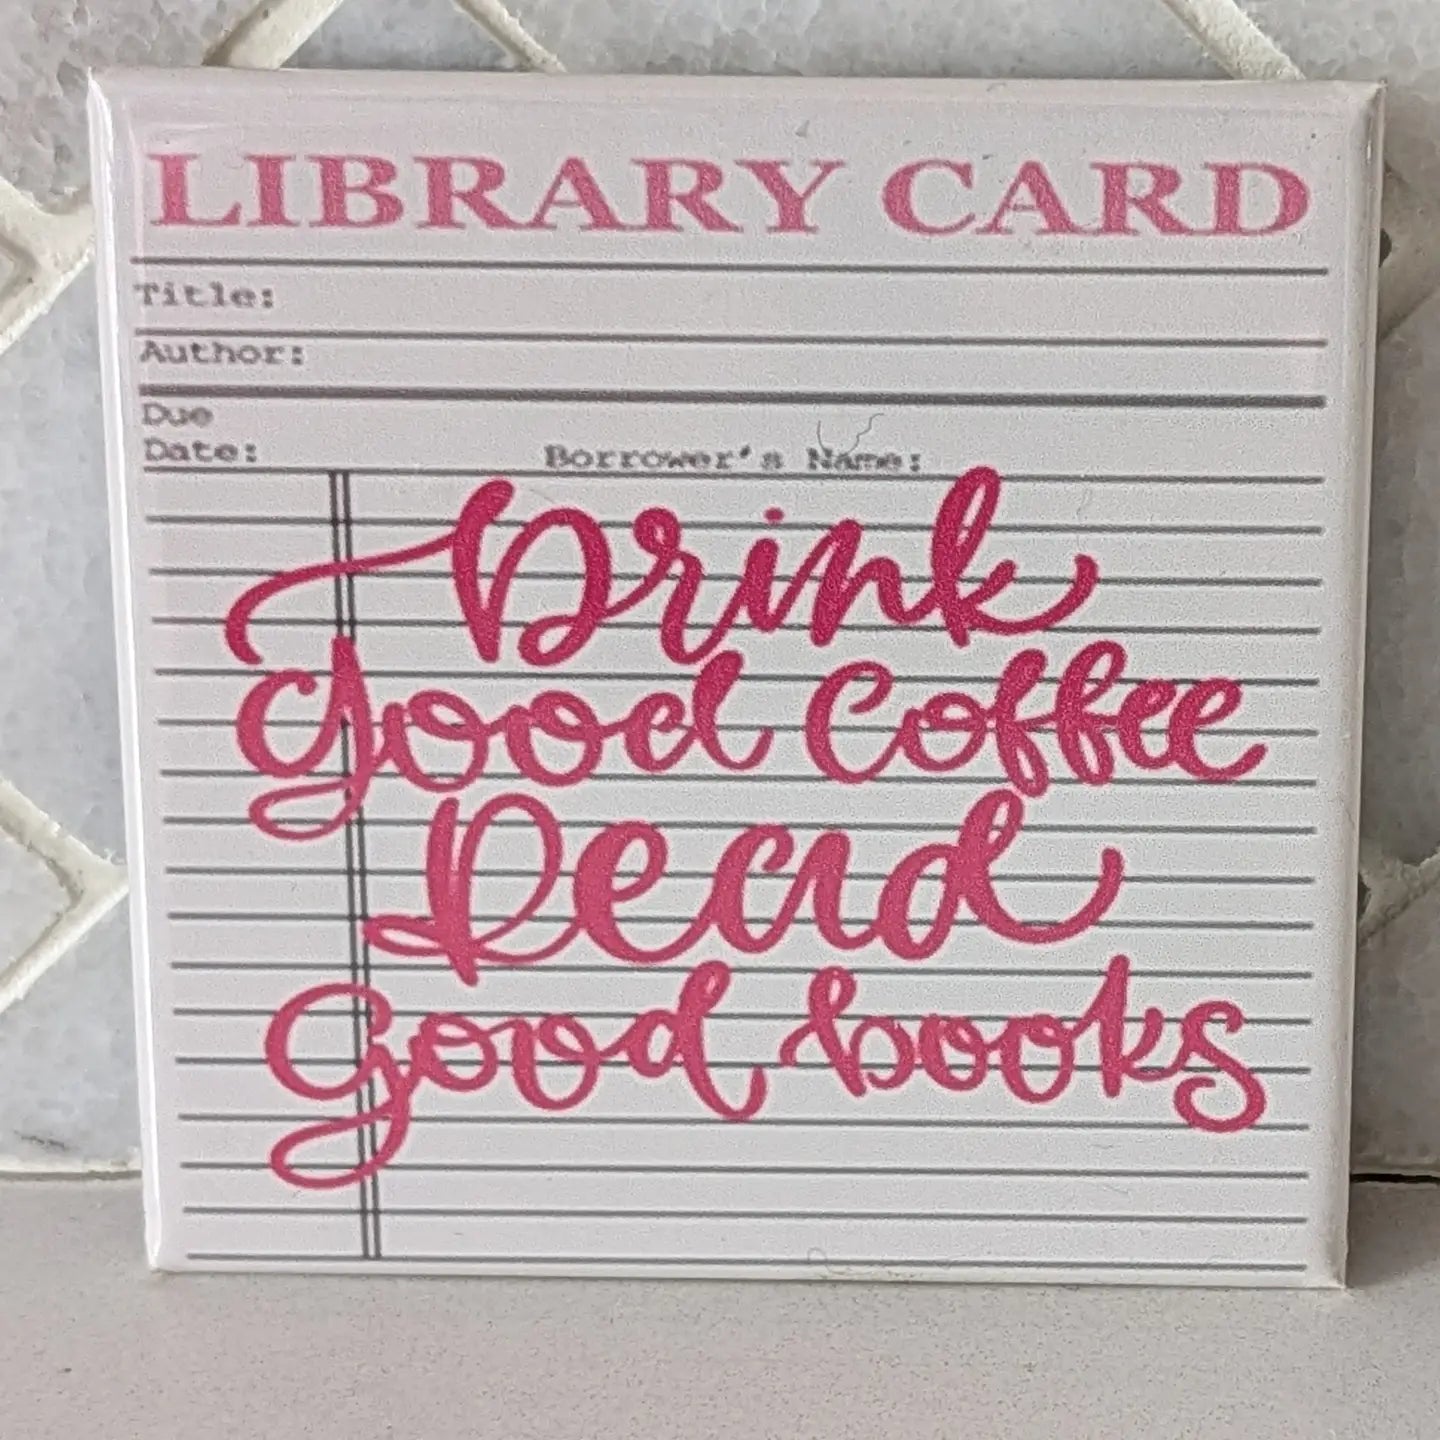 LIBRARY CARD
Title:
Author:
Due
Date:
Borrower's Name:
Drink
good coffee
Read
good books